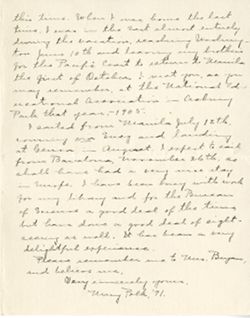 this time. When I was home the last
time, I was in the East almost entirely
during the vacation, reaching Washing-
ton June 10th and leaving my brothers
for the Pacific Coast to return to Manila
the first of October. I met you, as you
may remember, at the National Ed-
ucational Association in Asbury
Park that year, -1905.
I sailed from Manila July 12th
coming via Suez and landing
at Genoa in August. I expect to sail
from Barcelona, November 26th, as
shall have had a very nice stay
in Europe. I have been busy with work
for my library and for the Bureau
of Science a good deal of the time
but have done a good deal of sight-
seeing as well. It has been a very
delightful experience.
Please remember me to Mrs. Bryan,
and believe me,
Very sincerely yours,
Mary Polk, '91.